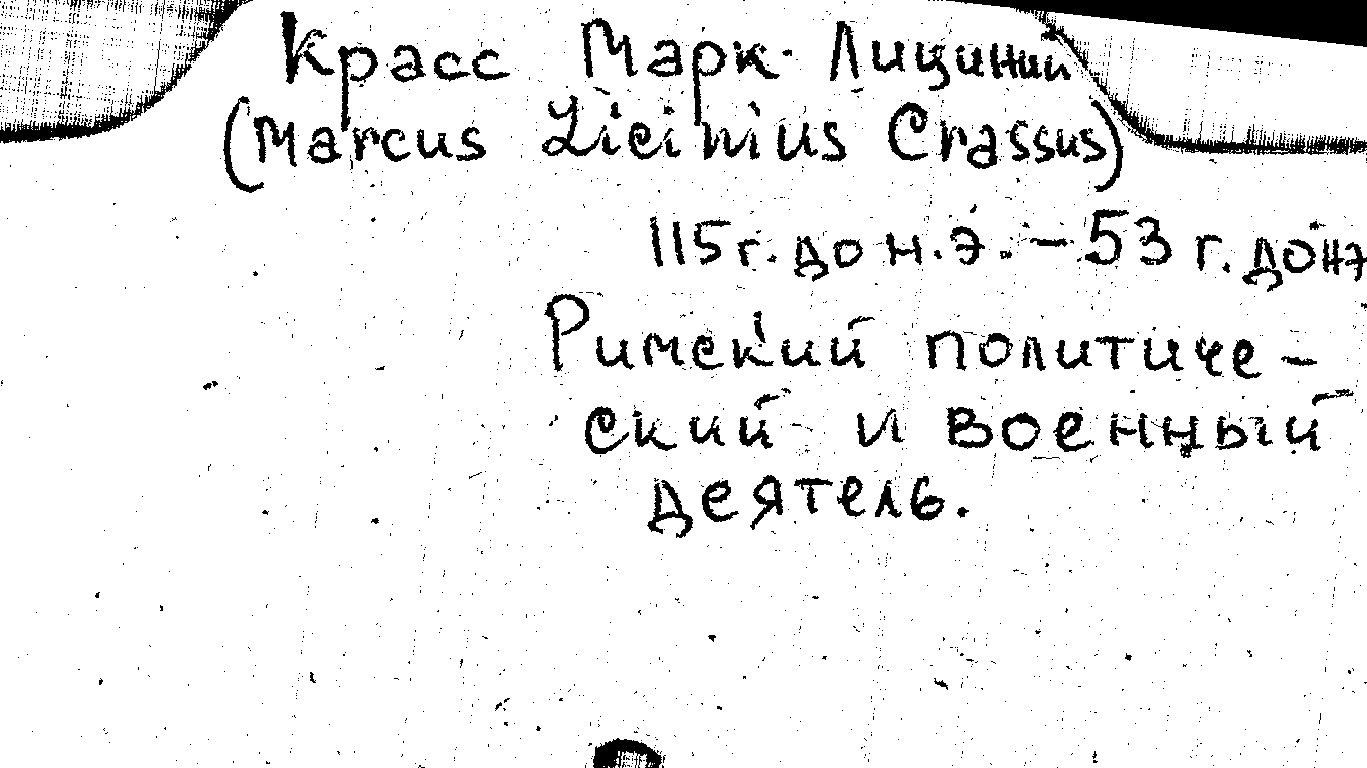 Красс Марк Лициний
(Marcus Licinius Crassus)
115 г. до н.э. – 53 г. до нэ
Римский политиче-
ский и военный
деятель.